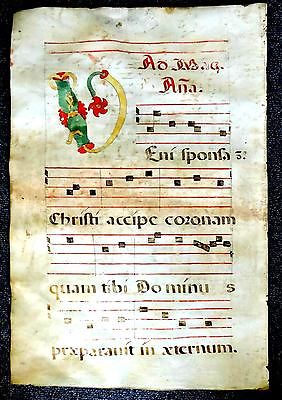 Ad Mag.
Aña.
VEni sponsa
Christi accipe coronam
quam tibi Dominus
præparavit in æternum.